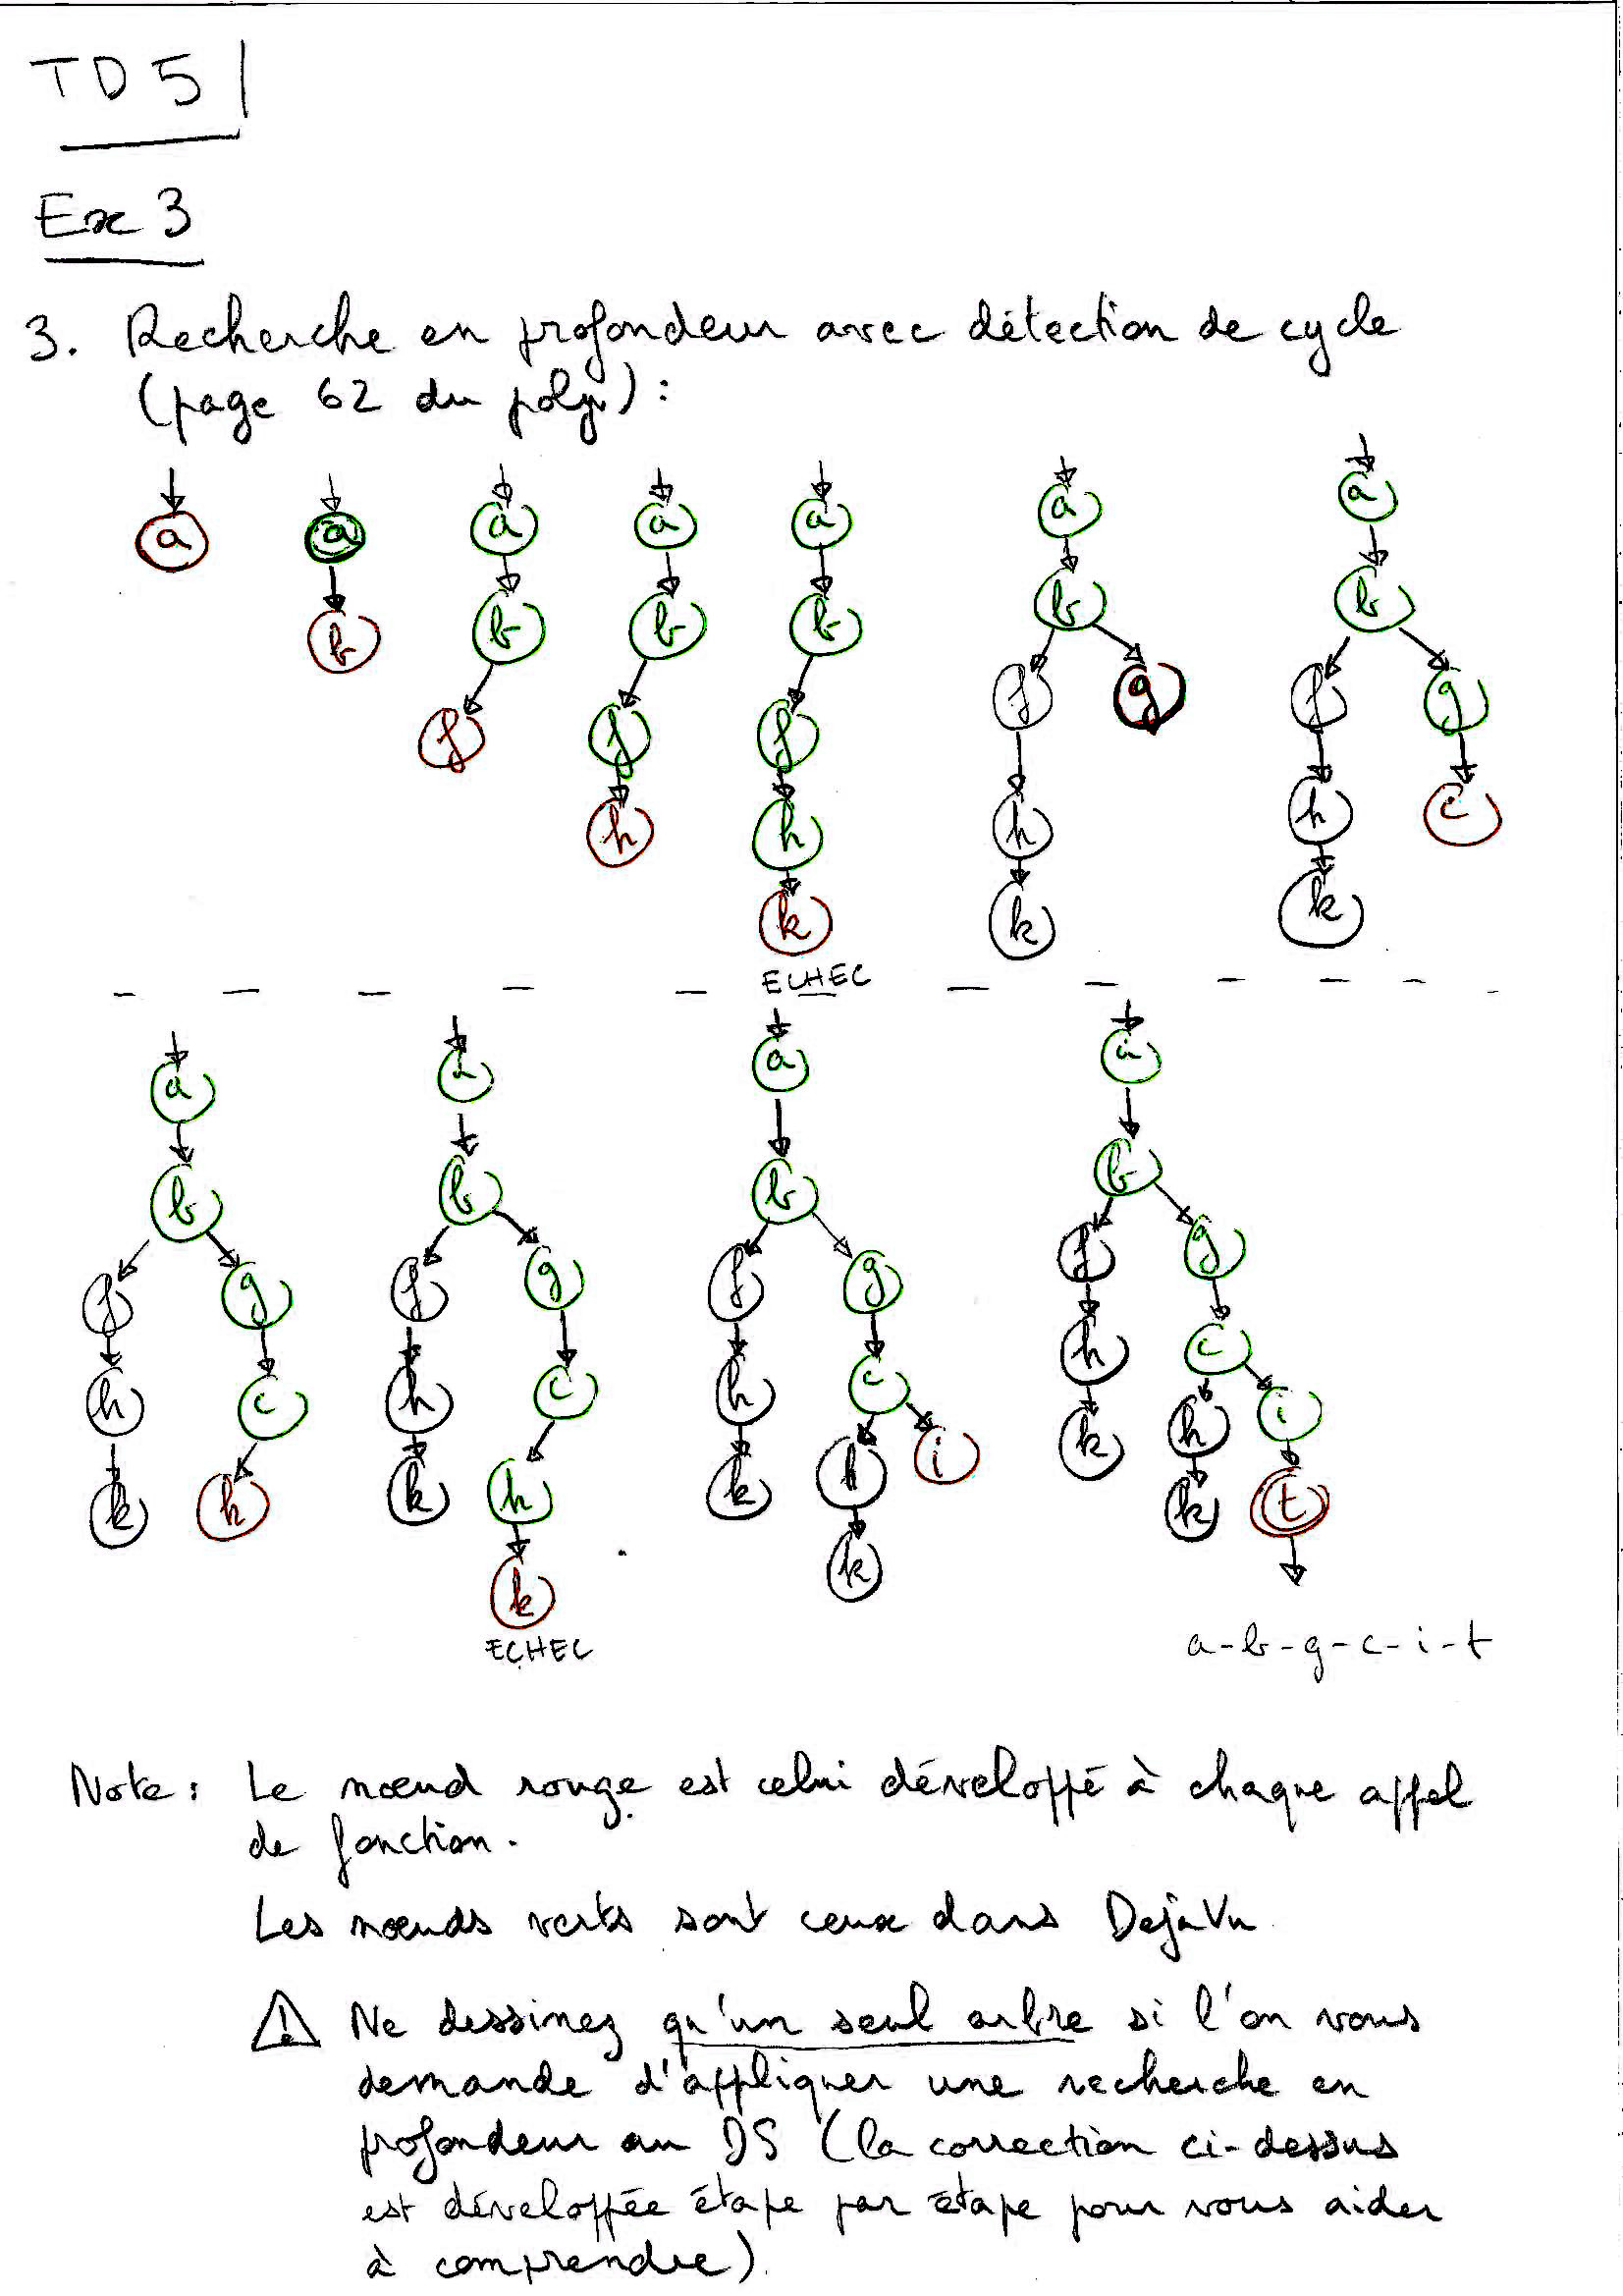 TD 5
Ex 3
3. Recherche en profondeur avec détection de cycle
(page 62 du poly) :
a a a a a a a
b b b b b b
f f f f g f g
h h h h c
k k k
ECHEC
a a a a
b b b b
f g f g f g f g
h c h c h c h c
k h k h k h i k h i
k k k t
ECHEC
a-b-g-c-i-t
Note : Le nœud rouge est celui développé à chaque appel
de fonction.
Les nœuds verts sont ceux dans DejaVu
! Ne dessinez qu'un seul arbre si l'on vous
demande d'appliquer une recherche en
profondeur au DS (la correction ci-dessus
est développée étape par étape pour vous aider
à comprendre).